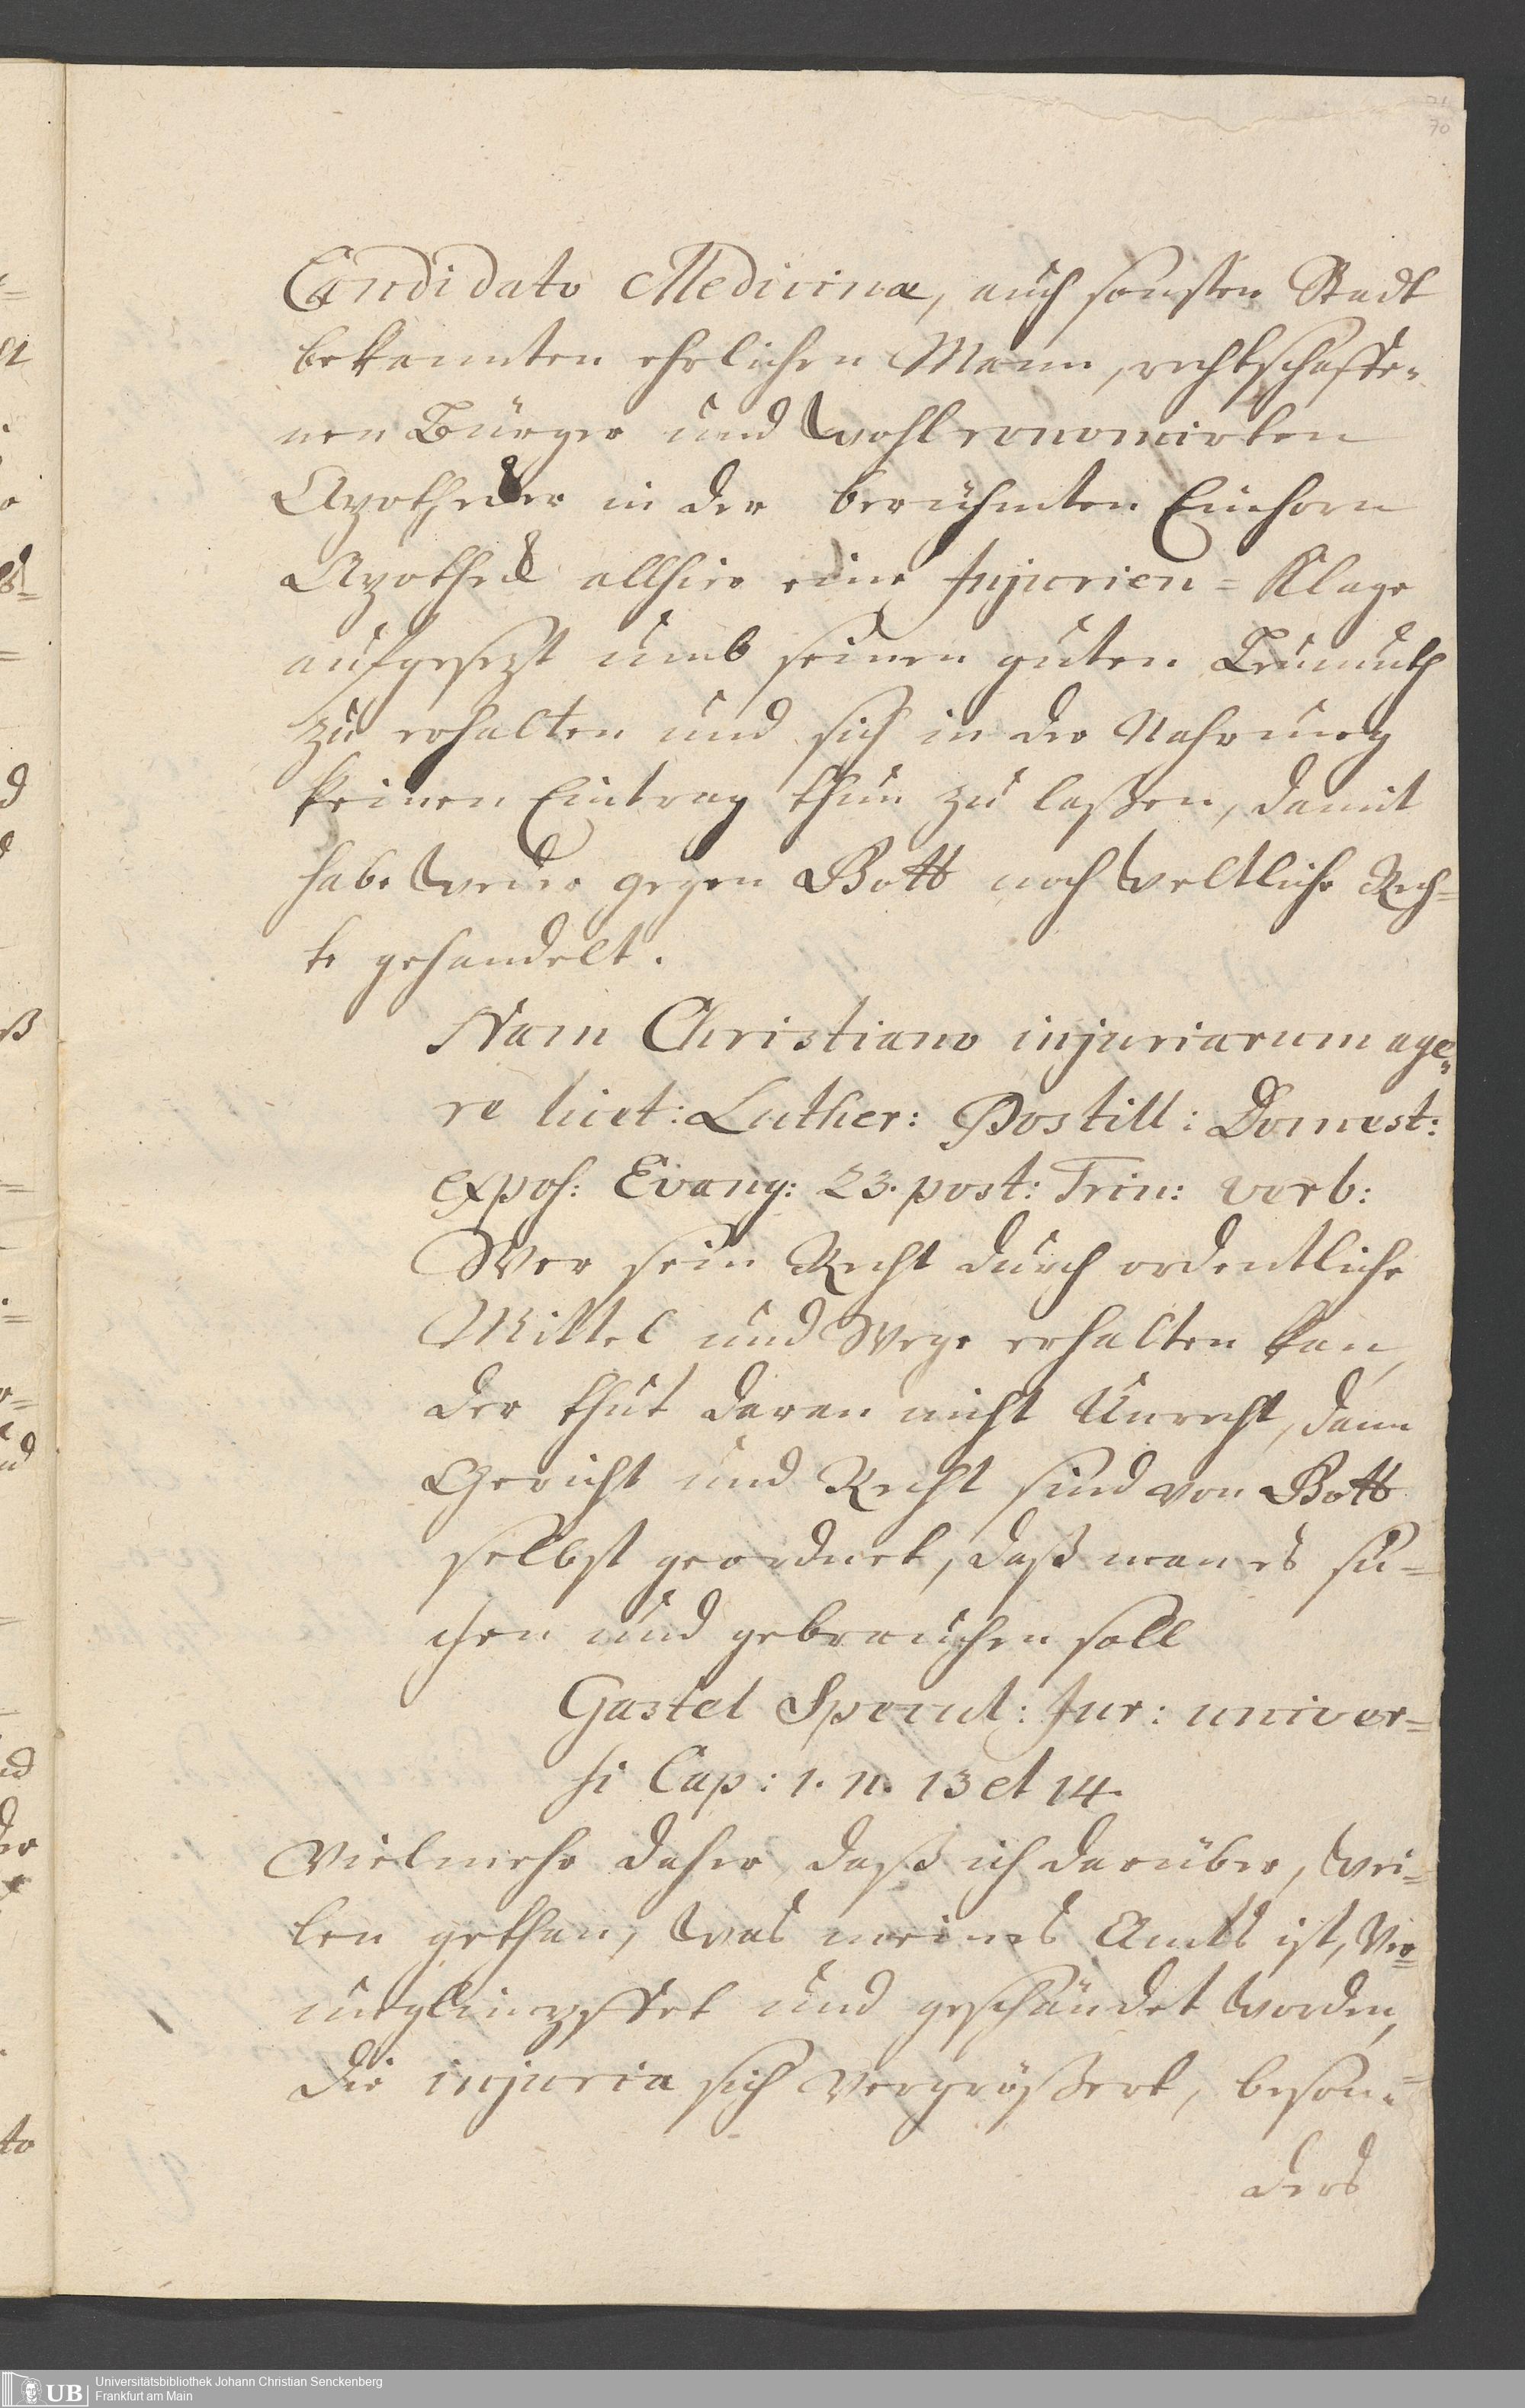 21
70
Candidato Medicinæ, auch sonsten Stadt
bekannten ehrlichen Mann, rechtschaffe-
nen Bürger und wohlrenomirten
Apothecker in der berühmten Einhorn
Apotheck allhier eine Injurien=Klage
aufgesezt umb seinen guten Leumuth
zu erhalten und sich in der Nahrung
keinen Eintrag thun zu laßen, damit
habe weder gegen Gott noch weltliche Rech=
te gehandelt.
Nam Christiano injuriarum age-
re licet: Luther: Postill: Domest:
expos: Evang: 23. post: Trin: verb:
Wer sein Recht durch ordentliche
Mittel und Wege erhalten kan,
der thut daran nicht Unrecht, dann
Gericht und Recht sind von Gott
selbst geordnet, daß man es su=
chen und gebrauchen soll
Gastel Jur: univer=
si Cap: 1. n. 13 et 14.
Vielmehr daher, daß ich darüber, wei=
len gethan, was meines Amts ist, ver=
unglimpffet und geschändet worden,
die injuria sich vergrößert, beson=
ders
UB
Universitätsbibliothek Johann Christian Senckenberg
Frankfurt am Main